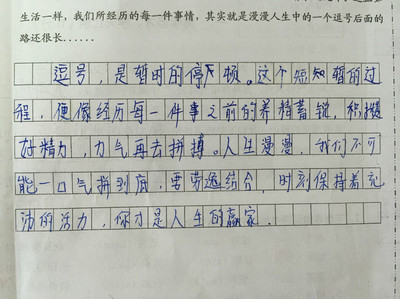 生活一样，我们所经历的每一件事情，其实就是漫漫人生中的一个逗号后面的
路还很长......
逗号，是暂时的停顿。这个短暂的过
程，便像经历每一件事之前的养精蓄锐，积攒
好精力，力气再去拼搏。人生漫漫，我们不可
能一口气拼到底，要劳逸结合，时刻保持着充
沛的活力，你才是人生的赢家.